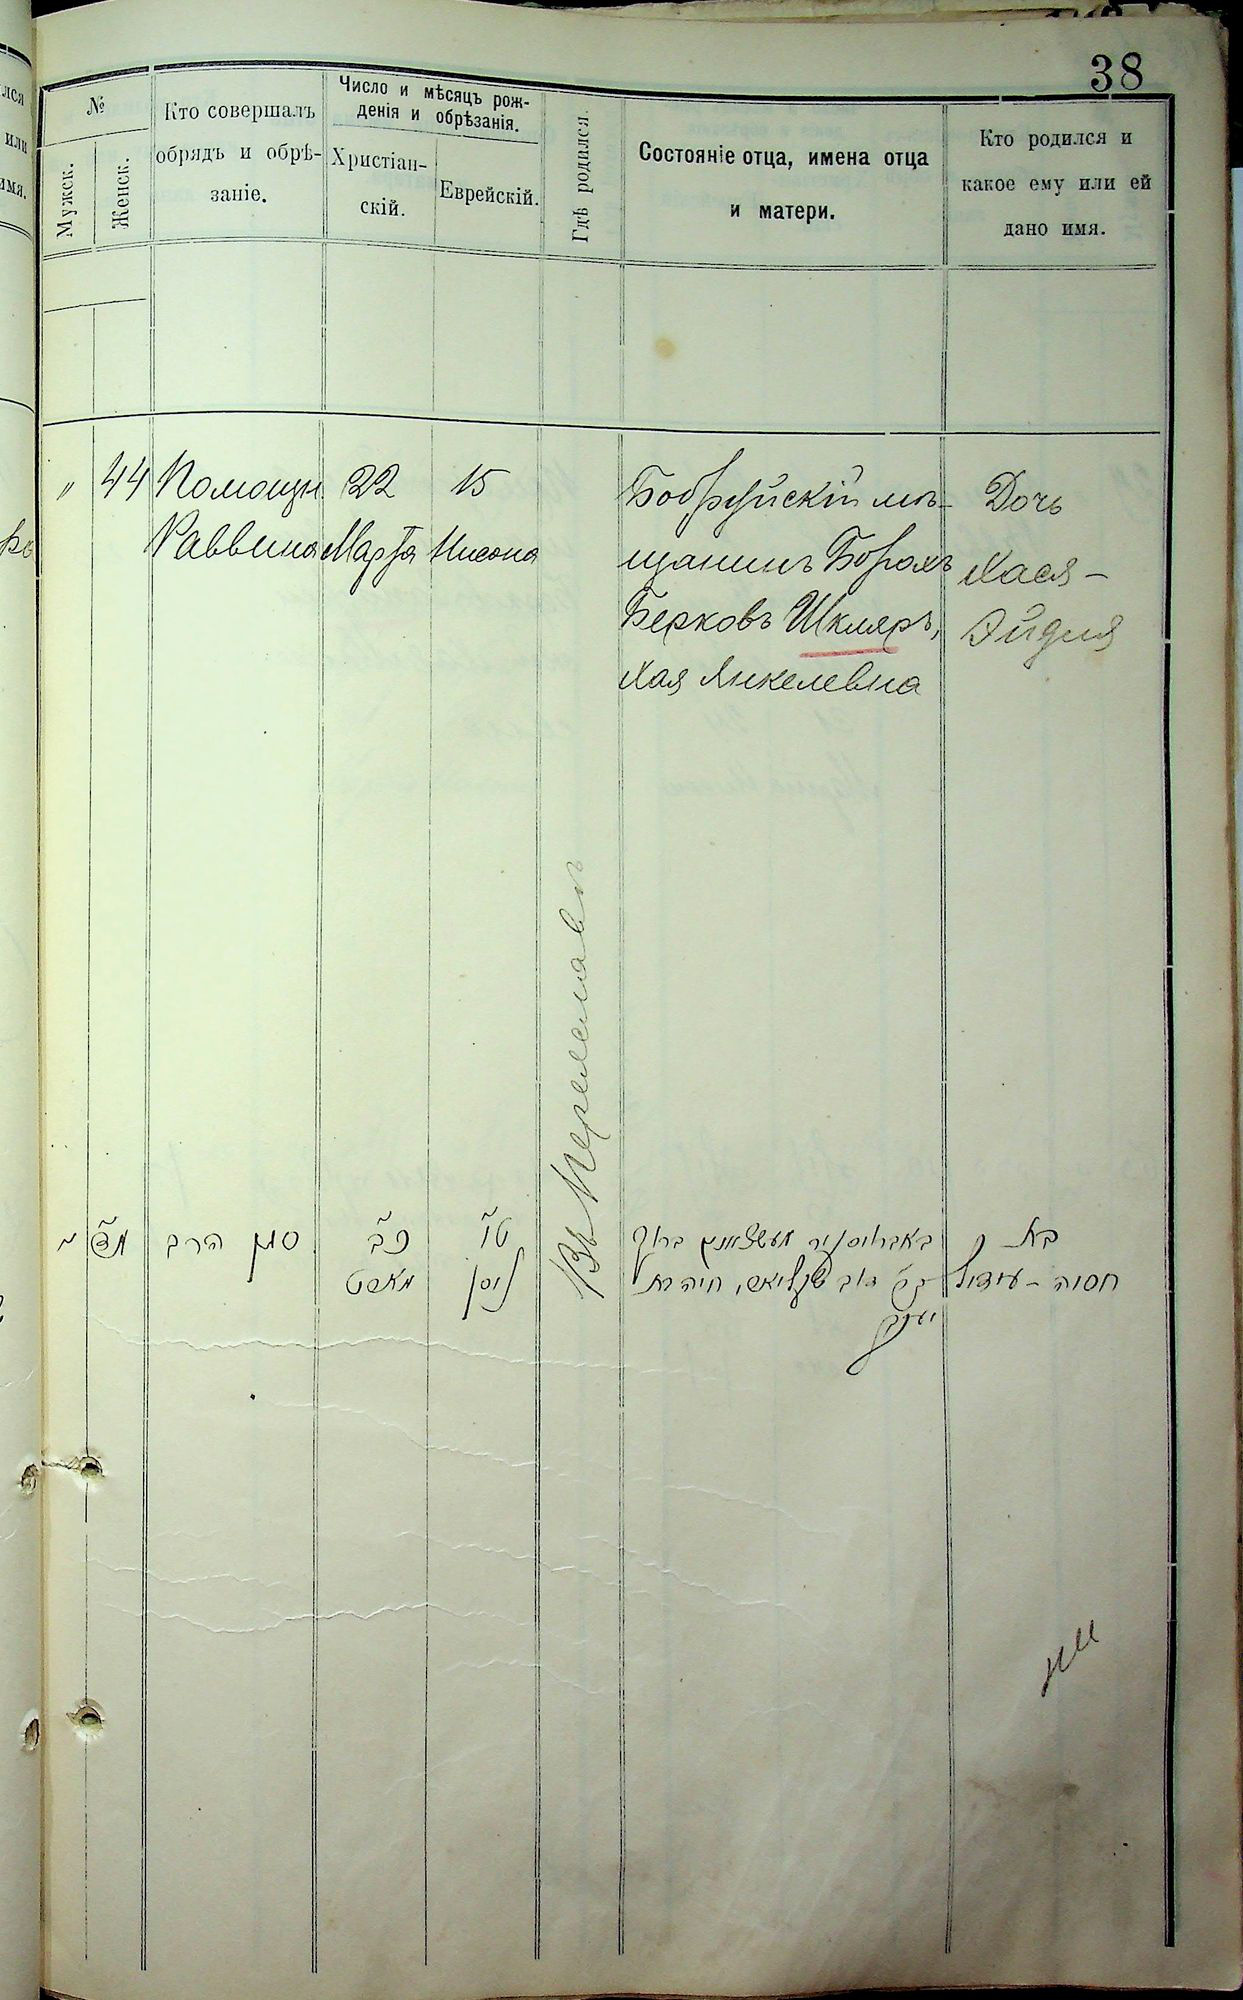 38
№
Мужск.
Женск.
Кто совершалъ
обрядъ и обрѣ-
заніе.
Число и мѣсяцъ рож-
денія и обрѣзанія.
Христіан-
скій.
Еврейскій.
Гдѣ родился.
Состояніе отца, имена отца
и матери.
Кто родился и
какое ему или ей
дано имя.
" 44
Помощн.
Раввина
22
Марта
15
Нисона
Въ Переяславлѣ
Бобруйскій мѣ-
щанинъ Борохъ
Берковъ Шкляръ,
Хая Янкелевна
Дочь
Хася -
Эйдля
מ״ד
סגן הרב
כ״ב
מארט
ט״ו
ניסן
ברוך
דוב שקליאר, חיה בת
יעקב
בת
חסיה - עידיל